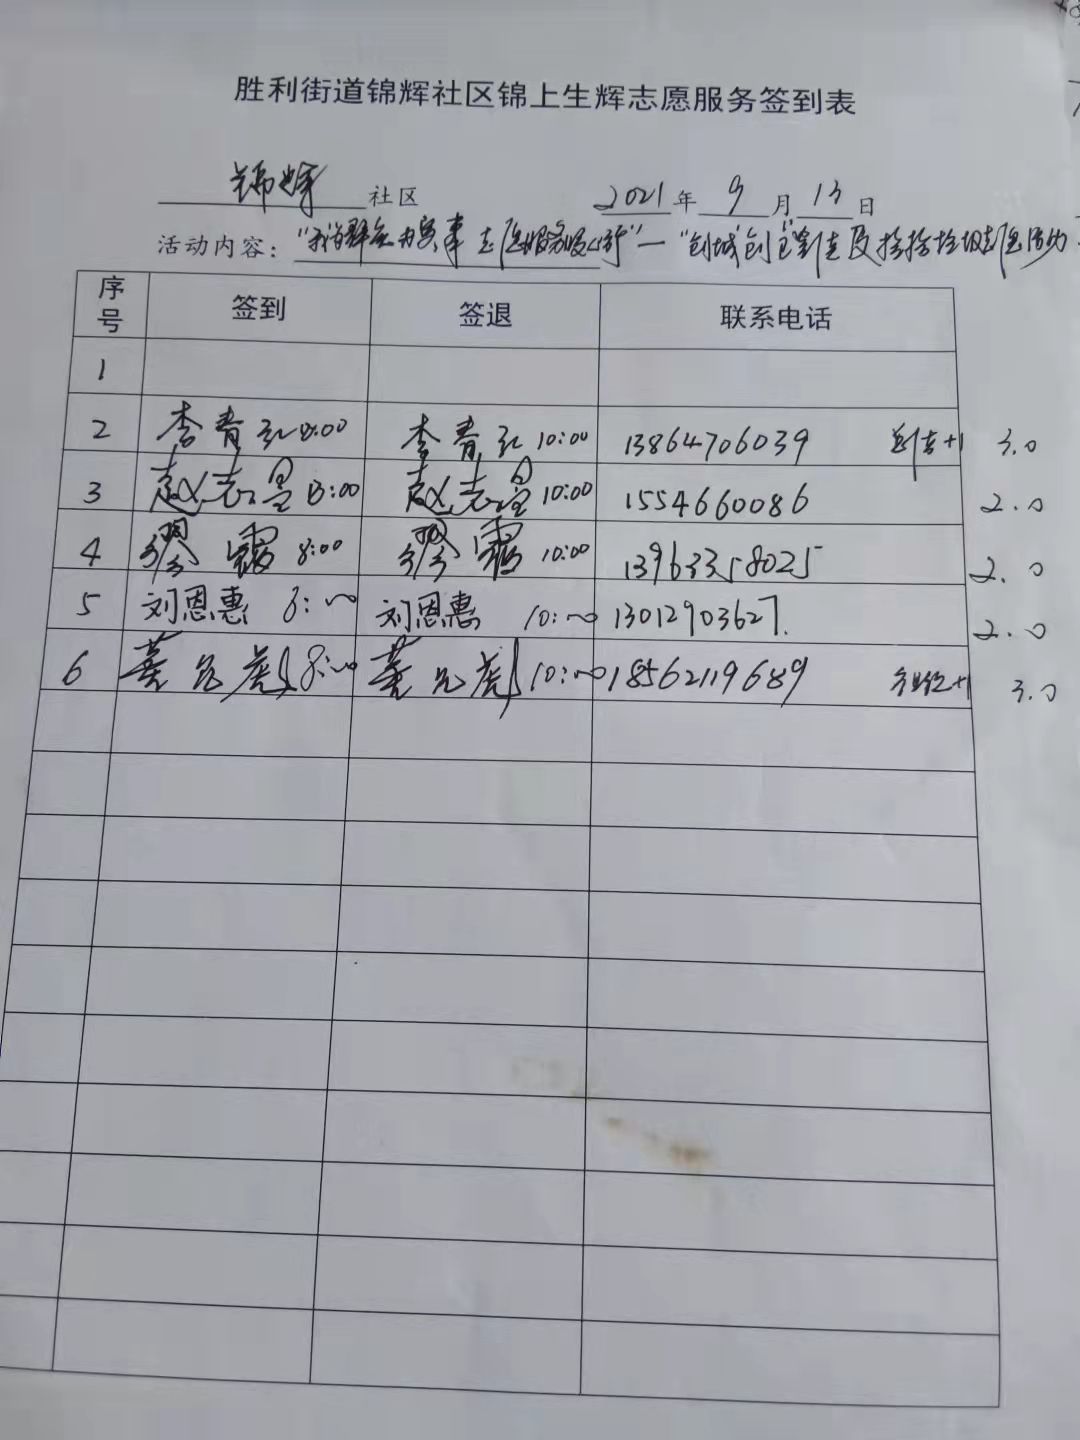 胜利街道锦辉社区锦上生辉志愿服务签到表
锦辉 社区 2021 年 9 月 13 日
活动内容： "我为群众办实事 志愿服务暖心行" — "创城创卫"宣传及捡拾垃圾志愿活动
序号 签到 签退 联系电话
1
2 李青红 8:00 李青红 10:00 13864706039 +1 3.0
3 赵志昱 8:00 赵志昱 10:00 1554660086 2.0
4 缪霞 8:00 缪霞 10:00 13963358025 2.0
5 刘恩惠 8:00 刘恩惠 10:00 13012903627. 2.0
6 8:00 10:00 18562119689 +1 3.0